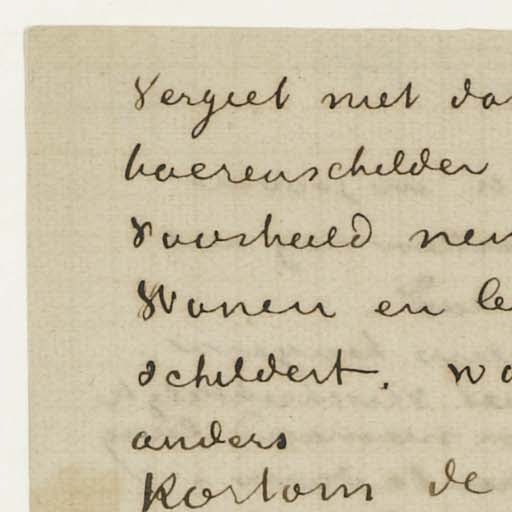 Vergeet niet da
boerenschilder
Voorbeeld nem
Wonen en le
schildert. wa
anders
Kortom de